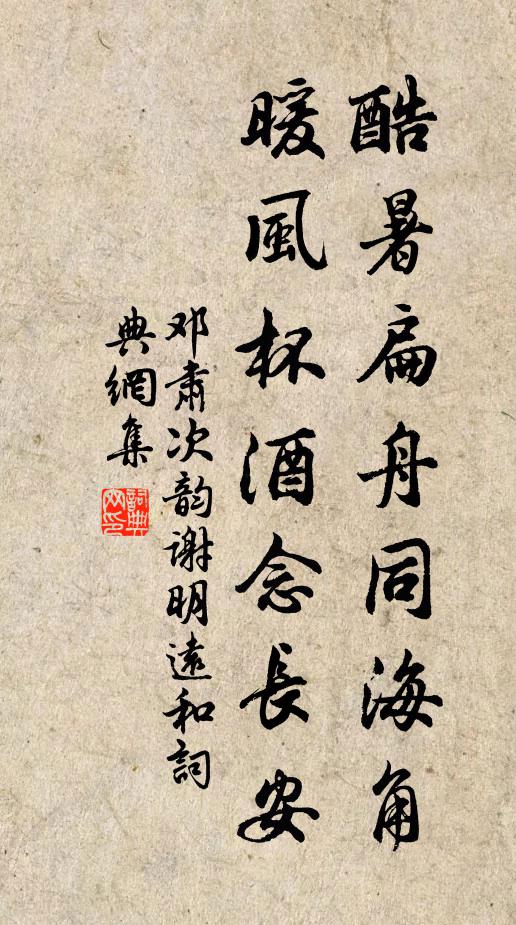 酷暑扁舟同海角
暖風杯酒念長安
邓肅次韵谢明遠和詞
典網集
詞典网印